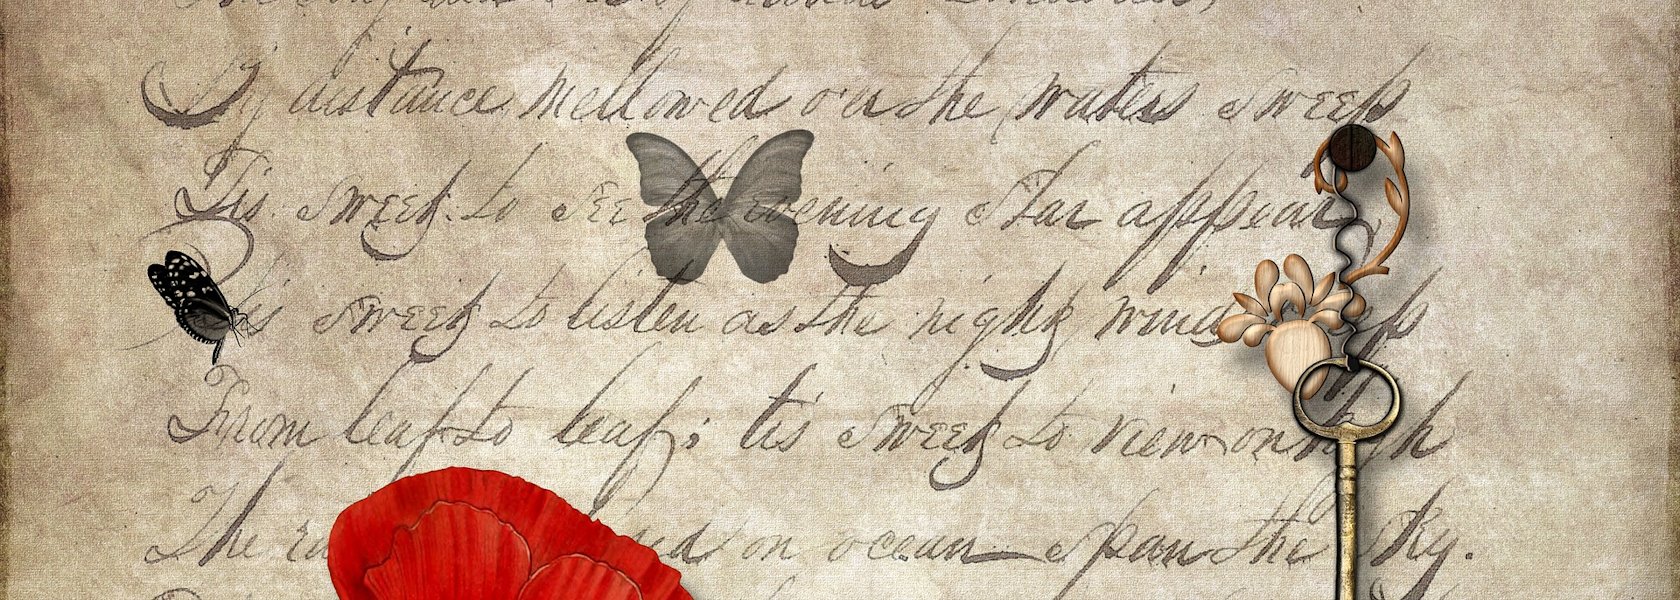 By distance mellowed o'er the waters sweep
Tis sweet to see the evening Star appear
Tis sweet to listen as the night winds
From leaf to leaf; tis sweet to view on high
The on ocean Span the Sky.